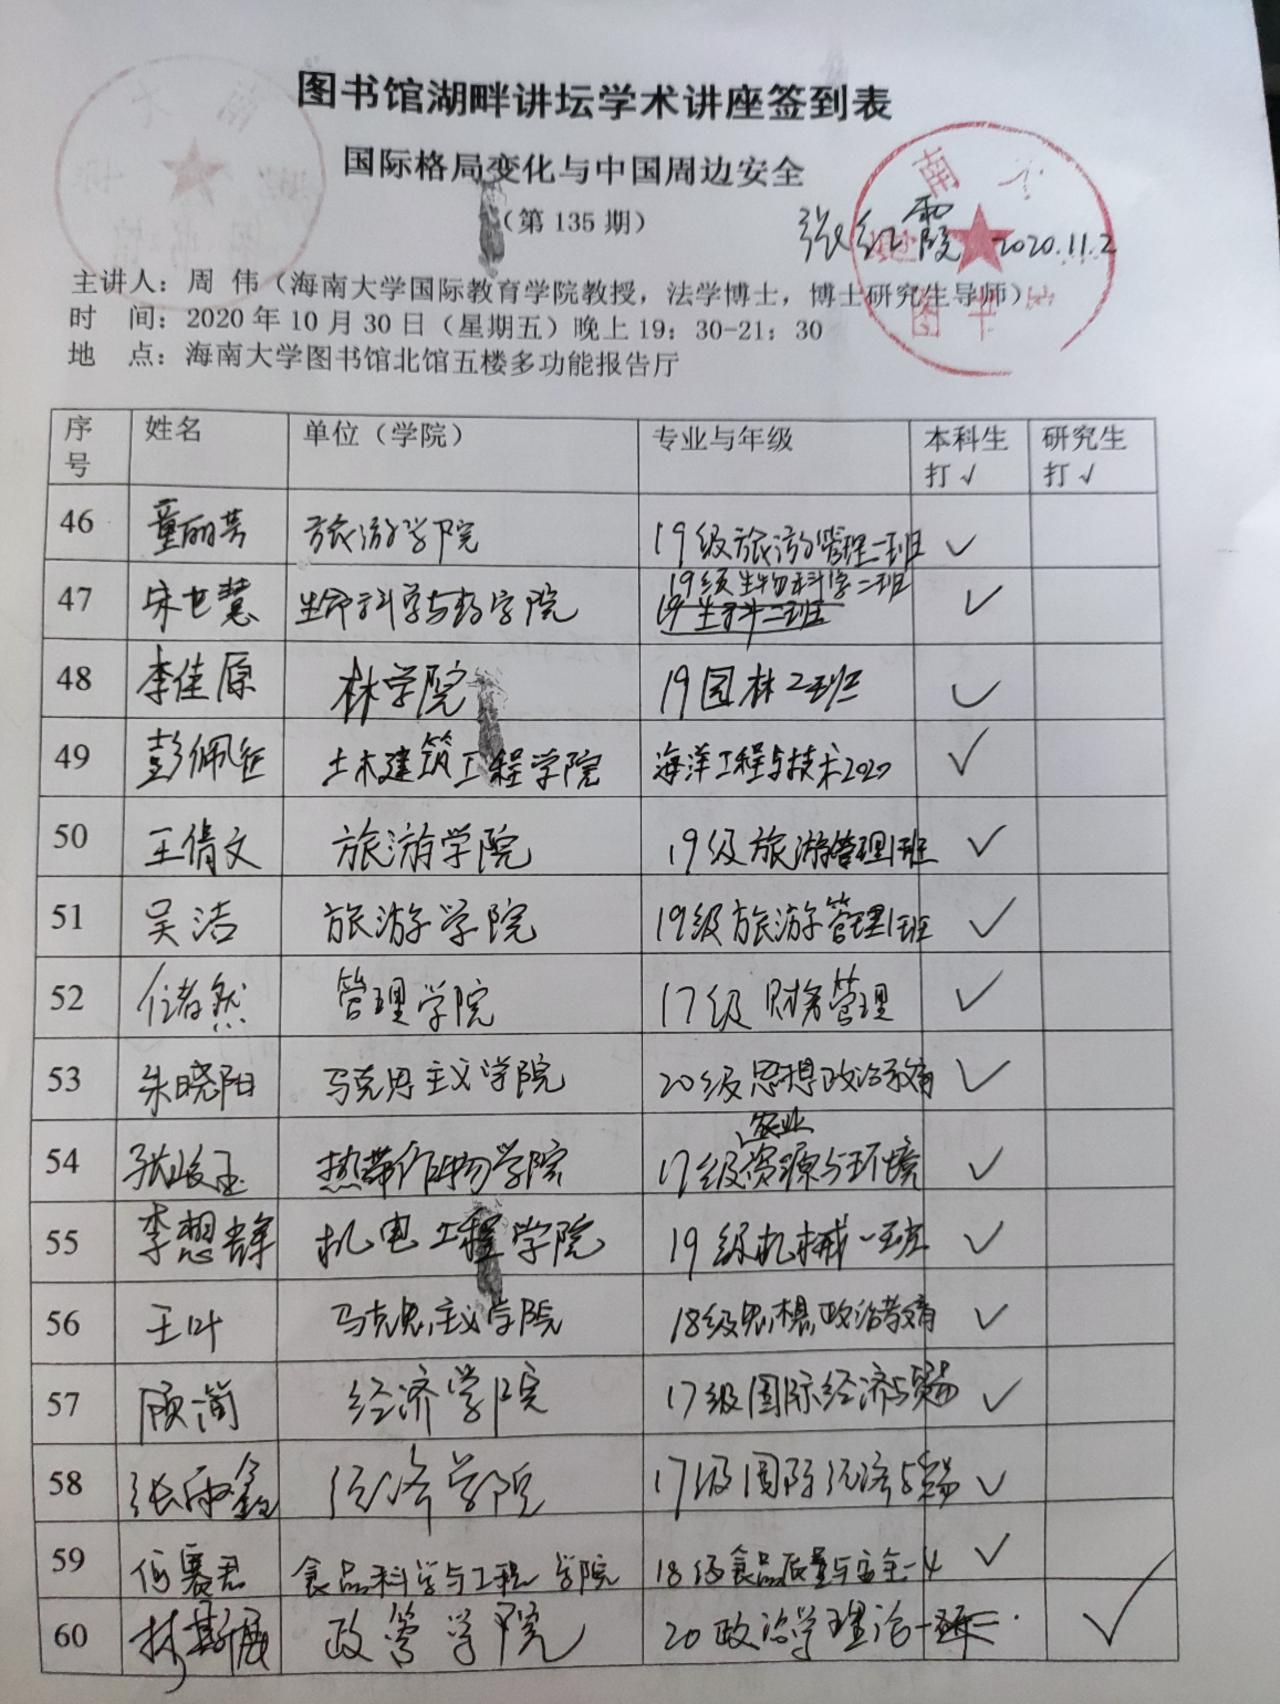 图书馆湖畔讲坛学术讲座签到表
国际格局变化与中国周边安全
（第 135 期）
张红霞 2020.11.2
主讲人：周 伟（海南大学国际教育学院教授，法学博士，博士研究生导师）
时 间：2020 年 10 月 30 日（星期五）晚上 19：30-21：30
地 点：海南大学图书馆北馆五楼多功能报告厅
序号 姓名 单位（学院） 专业与年级 本科生打√ 研究生打√
46 童丽芳 旅游学院 19级旅游管理二班 ✓
47 宋世慧 生命科学与药学院 19级生物科学二班 ✓
48 李佳原 林学院 19园林2班 ✓
49 彭佩 土木建筑工程学院 海洋工程与技术2020 ✓
50 王倩文 旅游学院 19级旅游管理1班 ✓
51 吴洁 旅游学院 19级旅游管理1班 ✓
52 储然 管理学院 17级财务管理 ✓
53 朱晓阳 马克思主义学院 20级思想政治教育 ✓
54 张峻玉 热带作物学院 17级农业资源与环境 ✓
55 李想 机电工程学院 19级机械一班 ✓
56 王叶 马克思主义学院 18级思想政治教育 ✓
57 顾简 经济学院 17级国际经济与贸易 ✓
58 张雨鑫 经济学院 17级国际经济与贸易 ✓
59 何赛君 食品科学与工程学院 18级食品质量与安全 ✓
60 林斯展 政管学院 20政治学理论 ✓